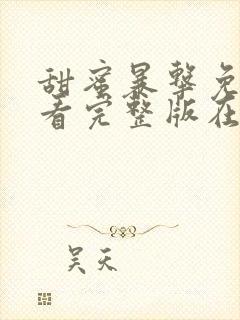 甜蜜暴击免
看完整版在
吴天